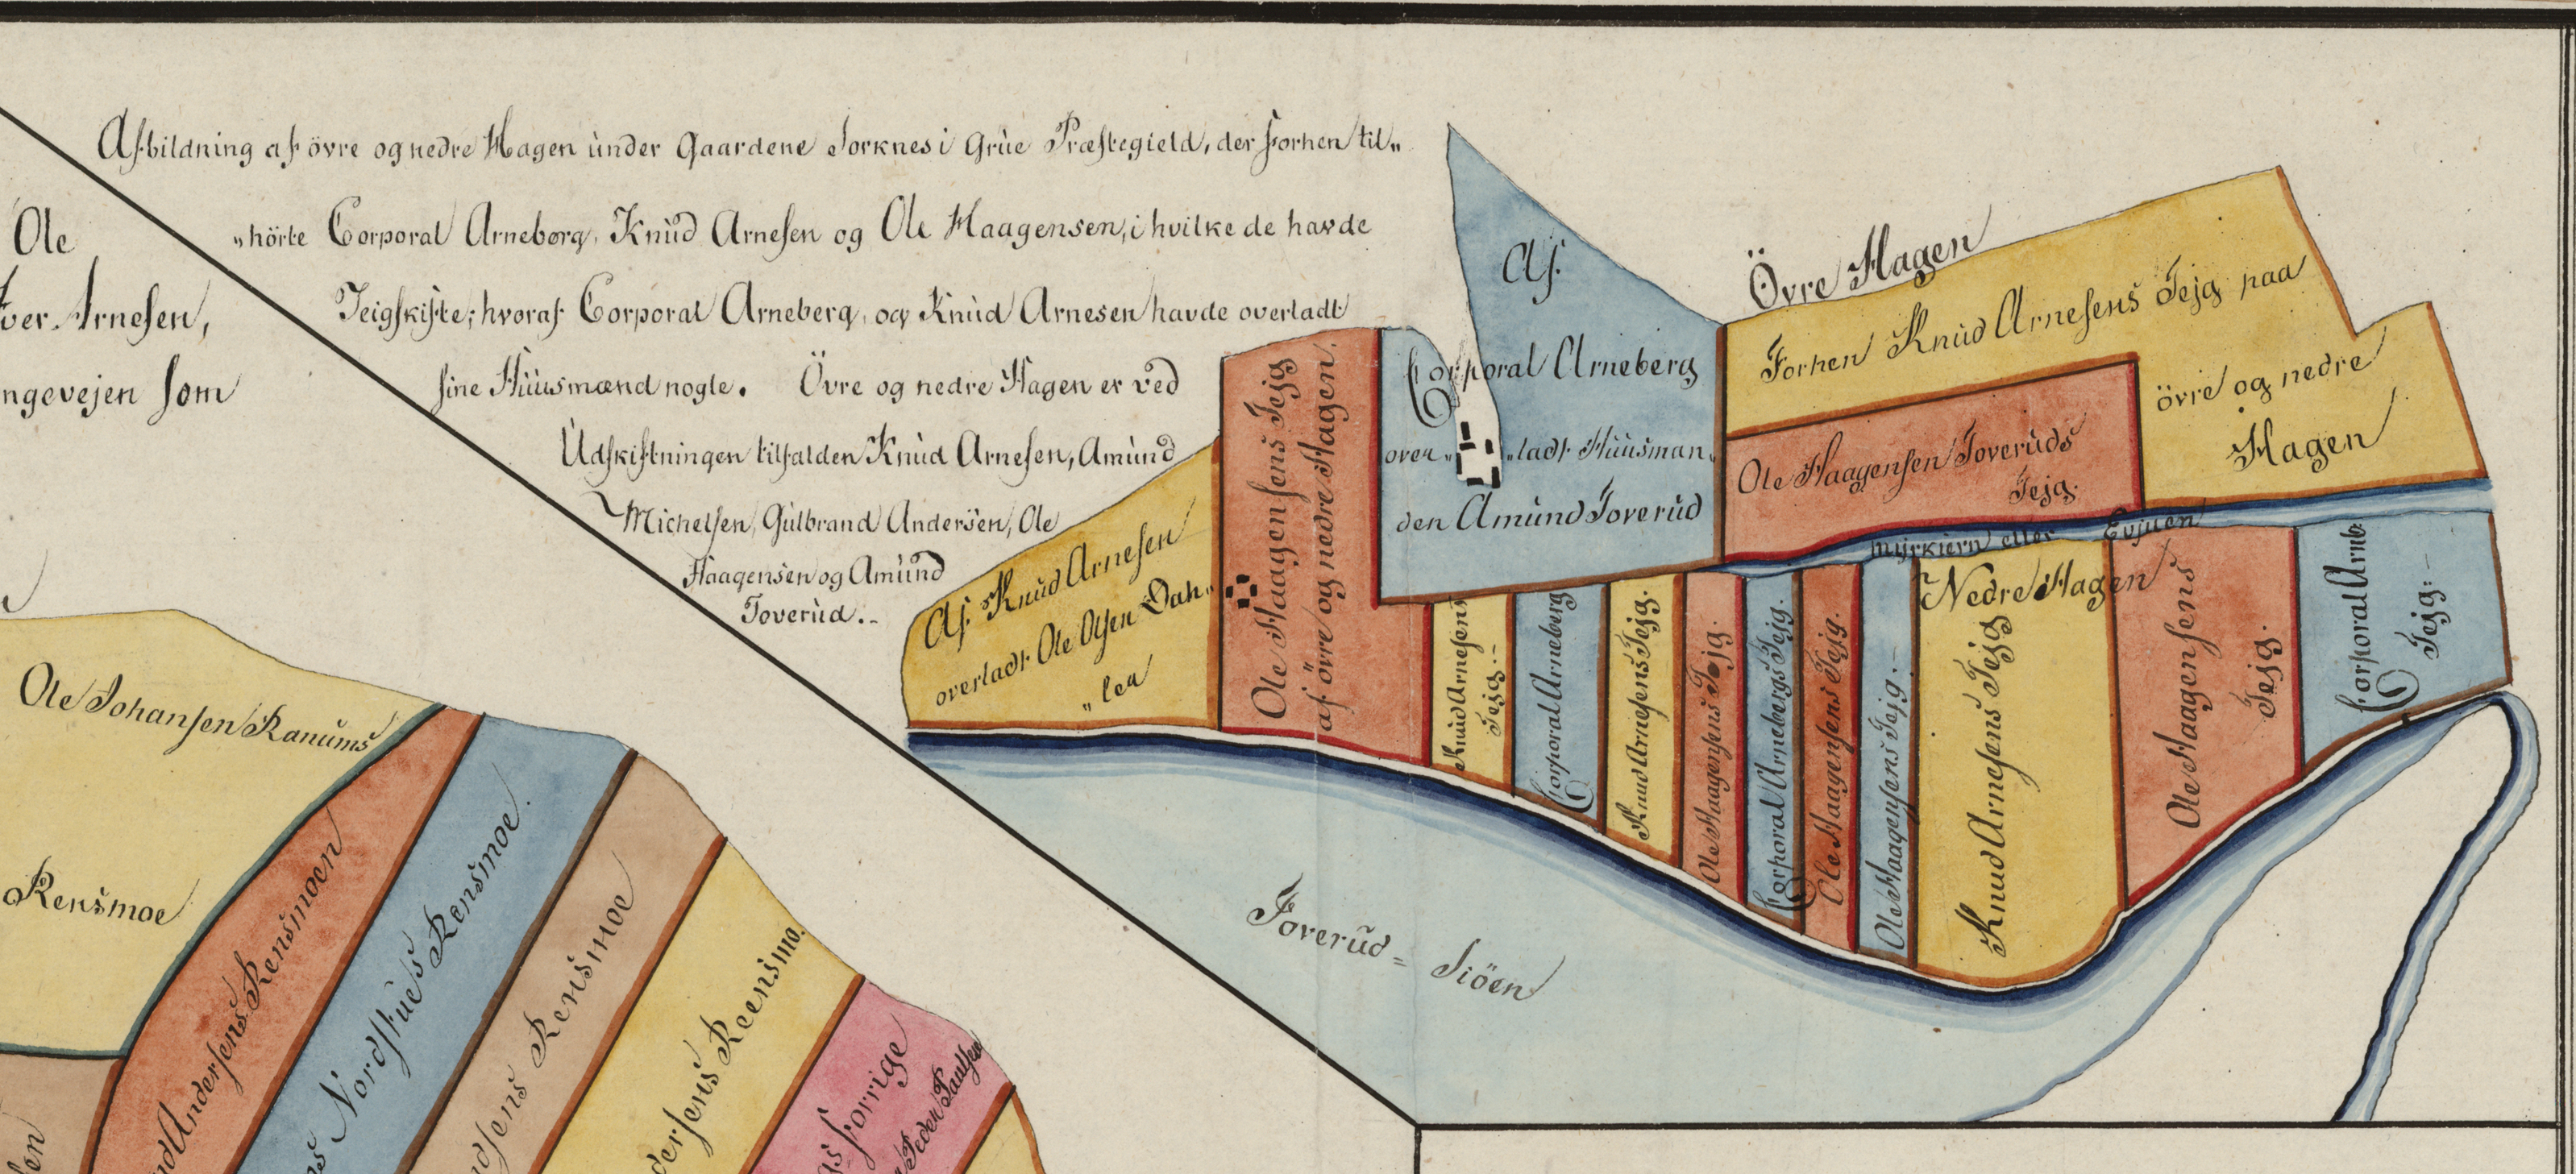 Afbildning af övre og nedre Hagen under Gaardene Sorknes i Grue Præstegield, der forhen til„
„hörte Corporal Arneberg, Knud Arnesen og Ole Haagensen, i hvilke de havde
Teigskifte; hvoraf Corporal Arneberg, og Knud Arnesen havde overladt
sine Huusmænd nogle. Övre og nedre Hagen er ved
Udskiftningen tilfalden Knud Arnesen, Amund
Michelsen, Gulbrand Andersen, Ole
Haagensen og Amund
Toverud.-
Ole
Arnesen,
ngevejen som
Övre Hagen
Af
Corporal Arneberg
over„ „ladt Huusman„
den Amund Toverud
Forhen Knud Arnesens Tejg paa
övre og nedre
Hagen
Ole Haagensen Toveruds
Tejg.
Myrkiern eller Evjuen
Af Knud Arnesen
overladt Ole Olsen Dah„
„len
Ole Haagensens Tejg
af övre og nedre Hagen.
Knud Arnesens
Tejg.-
Corporal Arneberg
Knud Arnesens Tejg.
Ole Haagensens Tejg.
Corporal Arnebergs Tejg.
Ole Haagensens Tejg.
Ole Haagensens Tejg.-
Nedre Hagen
Knud Arnesens Tejg
Ole Haagensens
Tejg.
Corporal Arneb:
Tejg:-
Toverud= Siöen
Ole Johansen Ranums
Rensmoe
Andersens Rensmoen
Nordstues Rensmoe.
dsens Rensmoe
dersens Reensmo.
gs forrige
Peder Paulsen
sen